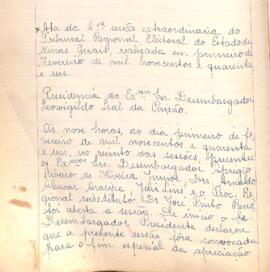 Ata da 21ª sessão extraordinaria do
Tribunal Regional Eleitoral do Estado de
Minas Gerais, realizada em primeiro de
Fevereiro de mil novecentos e quarenta
e seis.
Presidencia do Exmo Snr. Desembargador
Leovigildo Leal da Paixão.
Ás nove horas, ao dia primeiro de fe-
vereiro de mil novecentos e quarenta
e seis, no recinto das sessões, presentes
os Exmos Srs. Desembargador
Ribeiro de Oliveira Junior, Drs. Arnaldo
Alencar Araripe, Jair Lins, e o Proc. Re-
gional substituto Dr José Pinto
aberta a sessão. De inicio o
Desembargador Presidente declarou
que a presente sessão fôra convocada
para o fim especial da apreciação